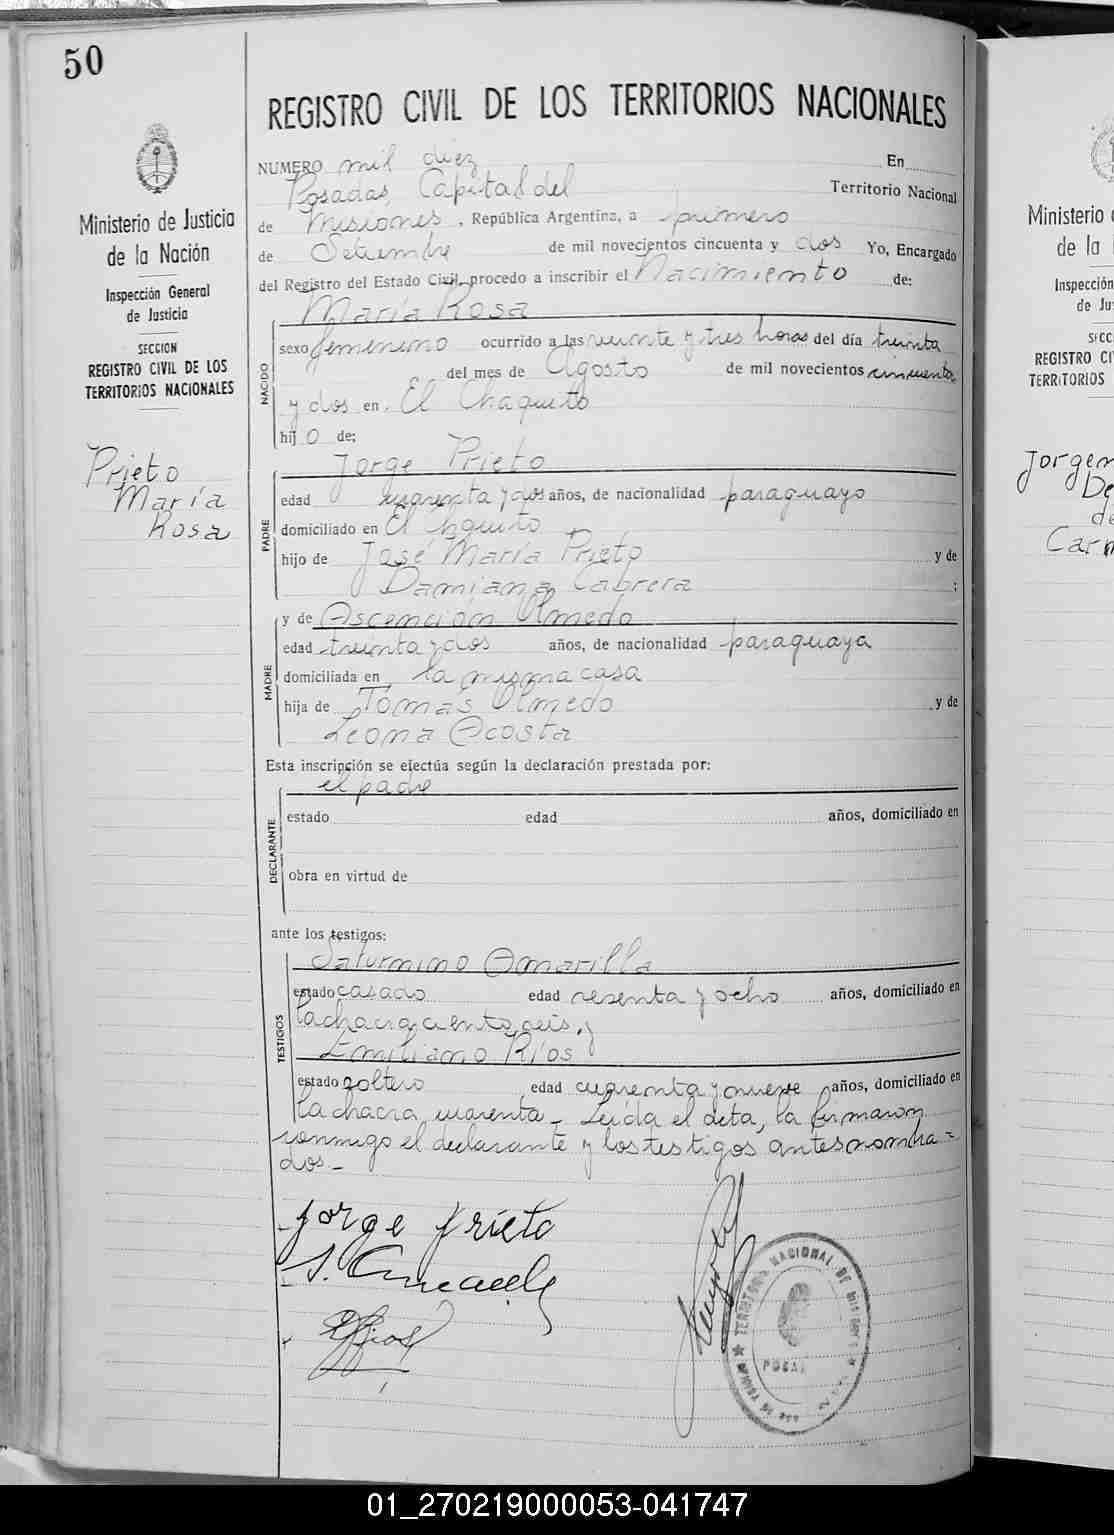 50
REGISTRO CIVIL DE LOS TERRITORIOS NACIONALES
Ministerio de Justicia
de la Nación
Inspección General
de Justicia
SECCION
REGISTRO CIVIL DE LOS
TERRITORIOS NACIONALES
Prieto
María
Rosa
NUMERO mil diez En
Posadas, Capital del Territorio Nacional
de Misiones, República Argentina, a primero
de Setiembre de mil novecientos cincuenta y dos Yo, Encargado
del Registro del Estado Civil, procedo a inscribir el Nacimiento de:
María Rosa
NACIDO
sexo femenino ocurrido a las veinte y tres horas del día treinta
del mes de Agosto de mil novecientos cincuenta
y dos en El Chaquito
hijo de;
Jorge Prieto
PADRE
edad cuarenta y dos años, de nacionalidad paraguayo
domiciliado en El
hijo de José María Prieto y de
Damiana Cabrera ;
y de Ascención Olmedo
MADRE
edad treinta y dos años, de nacionalidad paraguaya
domiciliada en la misma casa
hija de Tomas Olmedo y de
Leona Acosta
Esta inscripción se efectúa según la declaración prestada por:
el padre
DECLARANTE
estado edad años, domiciliado en
obra en virtud de
ante los testigos:
Saturnino Amarilla
TESTIGOS
estado casado edad sesenta y ocho años, domiciliado en
la chacra ciento seis, y
Emiliano Ríos
estado soltero edad cuarenta y nueve años, domiciliado en
la chacra cuarenta - Leída el acta, la firmaron
conmigo el declarante y los testigos antes nombra=
dos.-
Jorge Prieto
TERRITORIO NACIONAL DE MISIONES
Ministerio
de la
Inspección
de Ju
SECC
REGISTRO CI
TERRITORIOS
Jorgen
De
de
Carm
01_270219000053-041747